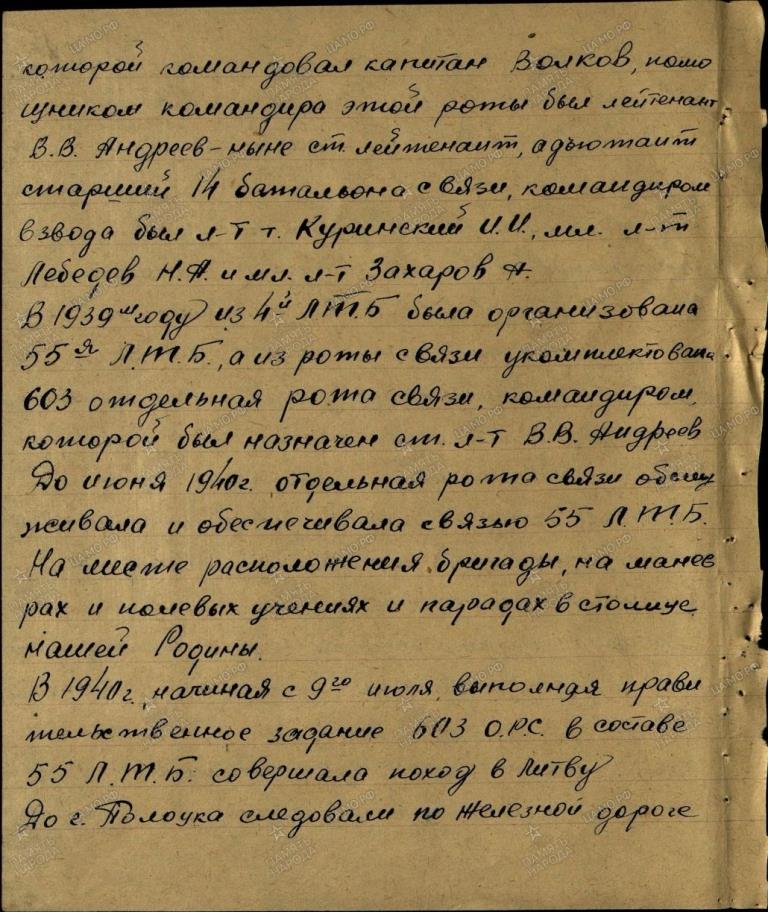 которой командовал капитан Волков, помо
щником командира этой роты был лейтенант
В.В. Андреев - ныне ст. лейтенант, адъютант
старший 14 батальона связи, командиром
взвода был л-т т. Куринский И.И., мл. л-т
Лебедев Н.А. и мл. л-т Захаров А.
В 1939м году из 4й Л.Т.Б была организована
55я Л.Т.Б., а из роты связи укомплектована
603 отдельная рота связи, командиром,
которой был назначен ст. л-т В.В. Андреев
До июня 1940г. отдельная рота связи обслу
живала и обеспечивала связью 55 Л.Т.Б.
На месте расположения бригады, на манев
рах и полевых учениях и парадах в столице
нашей Родины.
В 1940г., начиная с 9го июля, выполняя прави
тельственное задание 603 О.Р.С. в составе
55 Л.Т.Б. совершала поход в Литву
До г. Полоцка следовали по железной дороге